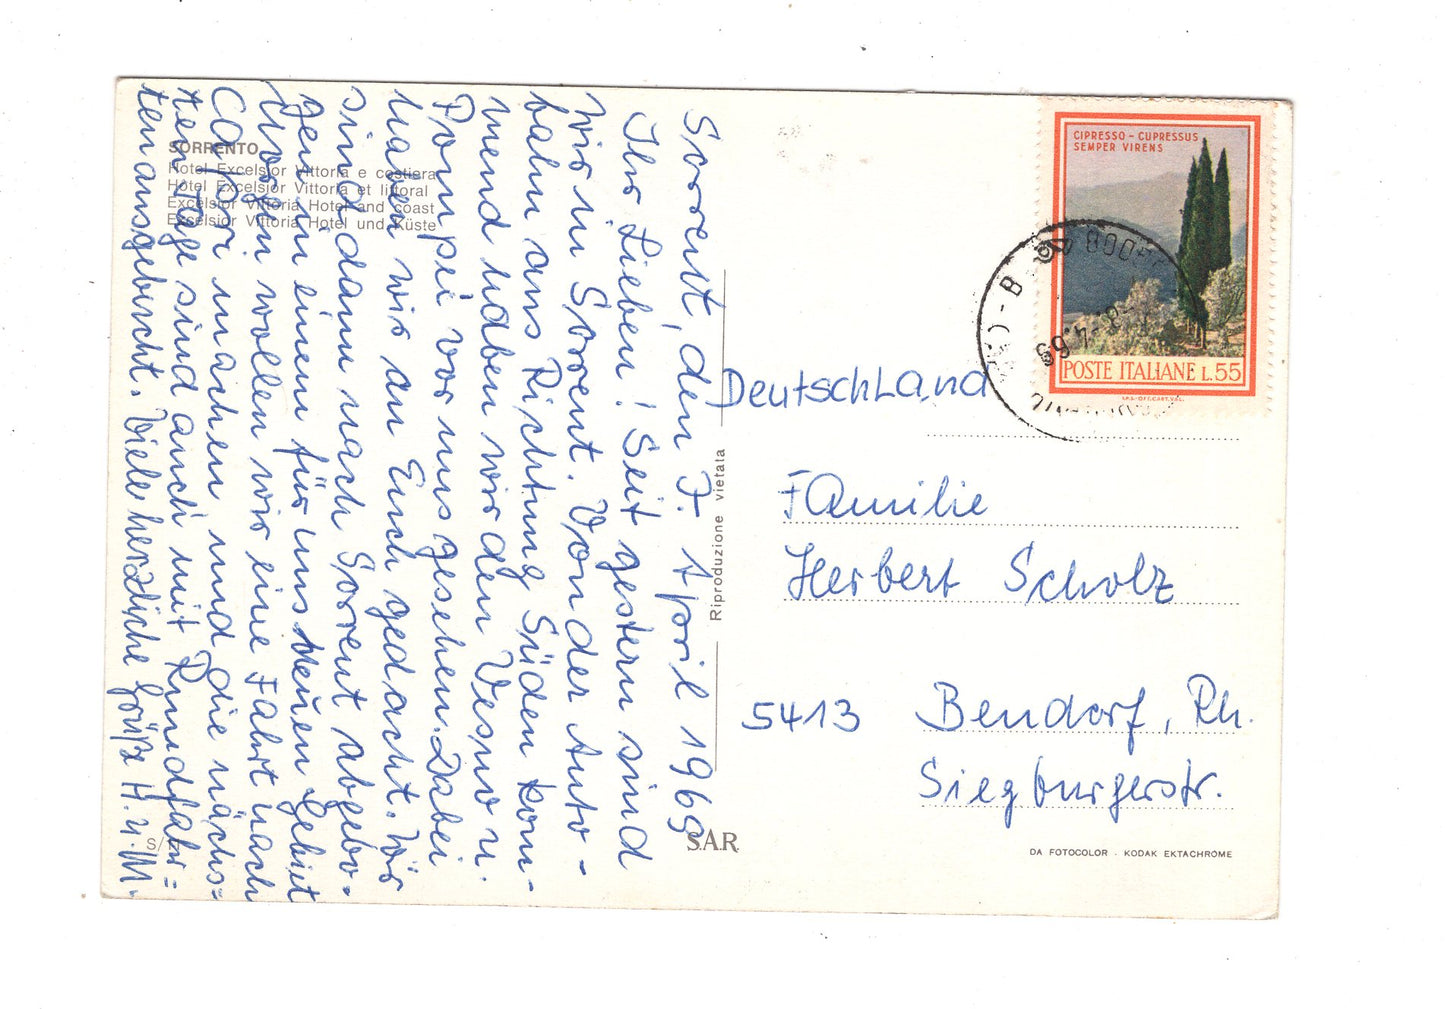 SORRENTO
Hotel Excelsior Vittoria e costiera
Hôtel Excelsior Vittoria et littoral
Excelsior Vittoria Hotel and coast
Excelsior Vittoria Hotel und Küste
Sorrent, den 7. April 1969
Ihr Lieben! Seit gestern sind
wir in Sorrent. Von der Auto-
bahn aus Richtung Süden kom-
mend haben wir den Vesuv u.
Pompei vor uns gesehen. Dabei
haben wir an Euch gedacht. Wir
sind dann nach Sorrent abgebo-
gen in einem für uns neuen Gebiet
Morgen wollen wir eine Fahrt nach
Capri machen und die nächs=
ten Tage sind auch mit Rundfahr=
ten ausgebucht. Viele herzliche Grüße H. u. M.
S/
S.A.R.
Riproduzione vietata
CIPRESSO - CUPRESSUS
SEMPER VIRENS
POSTE ITALIANE L.55
SPS.-OFF.CART.VAL.
8.-4.69
Deutschland
Familie
Herbert Scholz
5413 Bendorf, Rh.
Siegburgerstr.
DA FOTOCOLOR - KODAK EKTACHROME